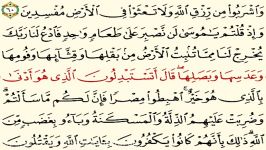 وَٱشْرَبُوا۟ مِن رِّزْقِ ٱللَّهِ وَلَا تَعْثَوْا۟ فِى ٱلْأَرْضِ مُفْسِدِينَ ٦٠
وَإِذْ قُلْتُمْ يَـٰمُوسَىٰ لَن نَّصْبِرَ عَلَىٰ طَعَامٍ وَٰحِدٍ فَٱدْعُ لَنَا رَبَّكَ
يُخْرِجْ لَنَا مِمَّا تُنۢبِتُ ٱلْأَرْضُ مِنۢ بَقْلِهَا وَقِثَّآئِهَا وَفُومِهَا
وَعَدَسِهَا وَبَصَلِهَا قَالَ أَتَسْتَبْدِلُونَ ٱلَّذِى هُوَ أَدْنَىٰ
بِٱلَّذِى هُوَ خَيْرٌ ٱهْبِطُوا۟ مِصْرًا فَإِنَّ لَكُم مَّا سَأَلْتُمْ
وَضُرِبَتْ عَلَيْهِمُ ٱلذِّلَّةُ وَٱلْمَسْكَنَةُ وَبَآءُو بِغَضَبٍ مِّنَ
ٱللَّهِ ذَٰلِكَ بِأَنَّهُمْ كَانُوا۟ يَكْفُرُونَ بِـَٔايَـٰتِ ٱللَّهِ وَيَقْتُلُونَ